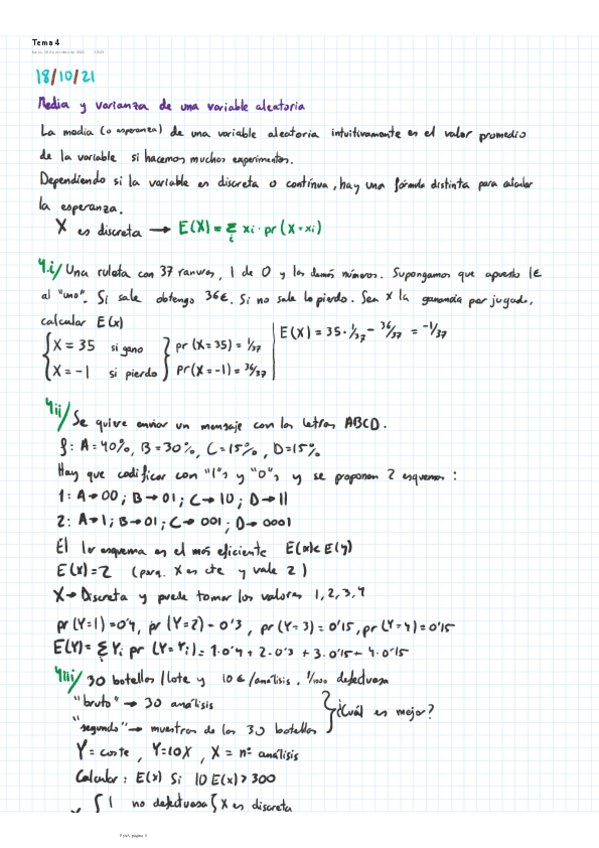 Tema 4
18/10/21
Media y varianza de una variable aleatoria
La media (o esperanza) de una variable aleatoria intuitivamente es el valor promedio
de la variable si hacemos muchos experimentos.
Dependiendo si la variable es discreta o contínua, hay una fórmula distinta para calcular
la esperanza.
X es discreta → E(X) = Σ xi · pr (X = xi)
i
4.i/ Una ruleta con 37 ranuras, 1 de 0 y los demás números. Supongamos que apuesto 1€
al "uno". Si sale obtengo 36€. Si no sale lo pierdo. Sea X la ganancia por jugada,
calcular E(x)
{X = 35 si gano } pr (X = 35) = 1/37 | E(X) = 35 · 1/37 - 36/37 = -1/37
{X = -1 si pierdo } pr (X = -1) = 36/37
4ii/ Se quiere enviar un mensaje con las letras ABCD.
f: A = 40%, B = 30%, C = 15%, D = 15%
Hay que codificar con "1"s y "0"s y se proponen 2 esquemas :
1: A → 00 ; B → 01 ; C → 10 ; D → 11
2: A → 1 ; B → 01 ; C → 001 ; D → 0001
El 1er esquema es el más eficiente E(x) < E(y)
E(x) = 2 (porq. X es cte y vale 2)
X → Discreta y puede tomar los valores 1, 2, 3, 4
pr (Y=1) = 0'4, pr (Y=2) = 0'3, pr (Y=3) = 0'15, pr (Y=4) = 0'15
E(Y) = Σ Yi pr (Y = Yi) = 1·0'4 + 2·0'3 + 3·0'15 + 4·0'15
4iii/ 30 botellas / lote y 10€/análisis, defectuosa
"bruto" → 30 análisis
"segundo" → muestras de las 30 botellas } ¿Cuál es mejor?
Y = coste, Y = 10X, X = nº análisis
Calcular : E(x) Si 10 E(x) > 300
{ 1 no defectuosa { X es discreta